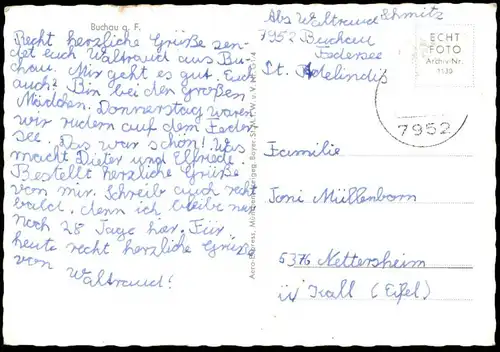 Buchau a. F.
Recht herzliche Grüße sen-
det euch Waltraud aus Bu-
chau. Mir geht es gut. Euch
auch? Bin bei den großen
Mädchen. Donnerstag waren
wir rudern auf dem Feder-
see. Das war schön! Was
macht Dieter und Elfriede.
Bestellt herzliche Grüße
von mir. Schreib auch recht
bald, denn ich bleibe nur
noch 28 Tage hier. Für
heute recht herzliche Grüße
von Waltraud!
Abs Waltraud Schmitz
7952 Buchau
Federsee
St. Adelindis
ECHT
FOTO
Archiv-Nr.
7952
Familie
Toni Müllenborn
5376 Nettersheim
ü/ Kall (Eifel)